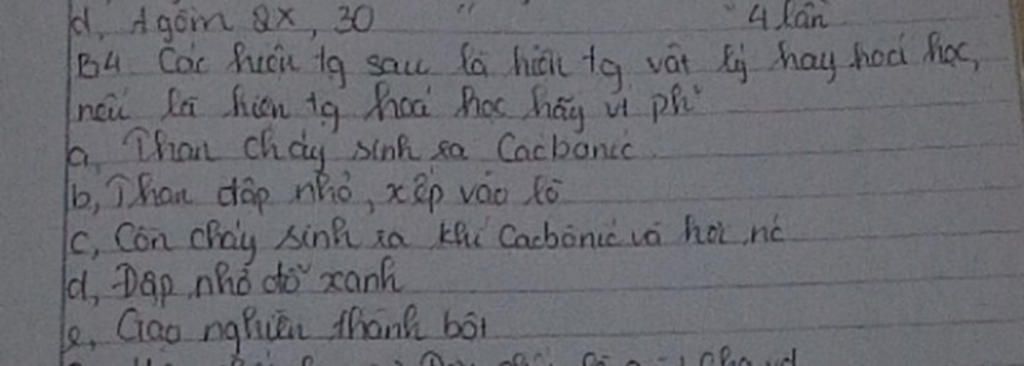 d, A gồm 2X, 3O " 4 lần
B4 Các hiện tg sau là hiện tg vật lý hay hoá học,
nếu là hiện tg hoá học hãy vi ph²
a, Than cháy sinh ra Cacbonic
b, Than đập nhỏ, xếp vào lò
c, Cồn cháy sinh ra khí Cacbonic và hơi nc
d, Đập nhỏ đỗ xanh
e, Gạo nghiền thành bột